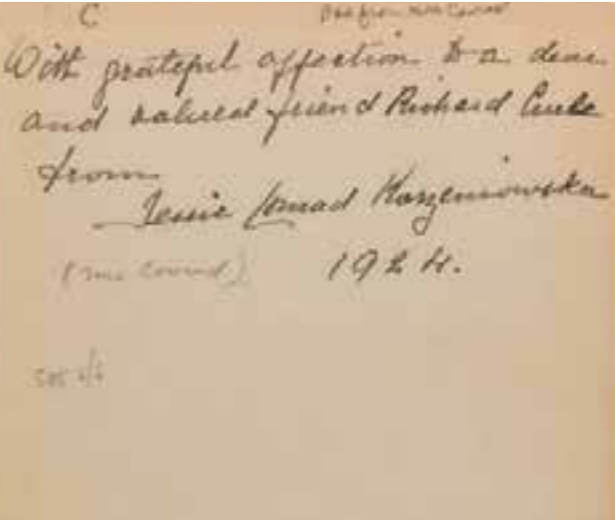 C
With grateful affection to a dear
and valued friend Richard Curle
from
Jessie Conrad Korzeniowska
(Mrs Conrad) 1924.